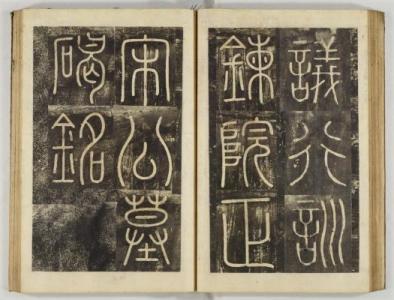 議行訓
鍊院正
宋公墓
碣銘